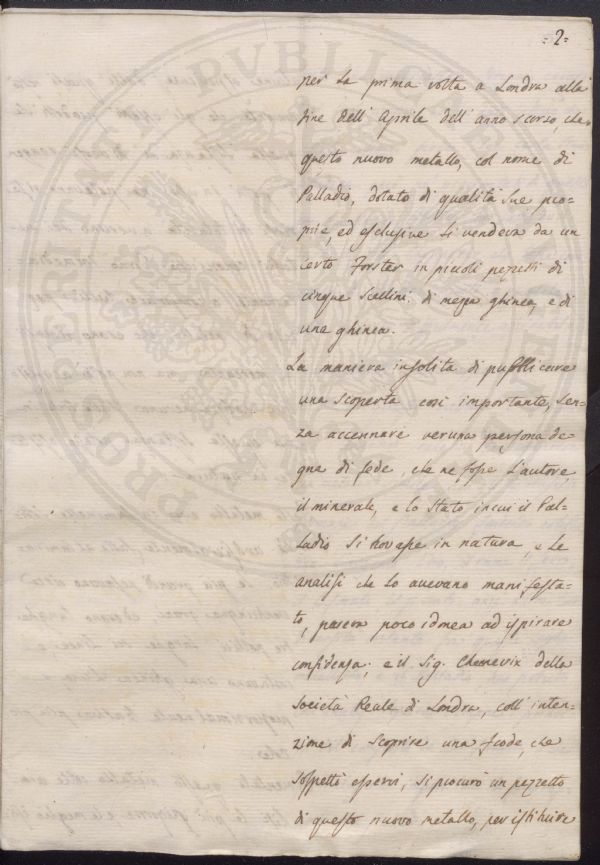 =2=
per la prima volta a Londra alla
fine dell' Aprile dell' anno scorso, che
questo nuovo metallo, col nome di
Palladio, dotato di qualità sue pro=
prie, ed esclusive si vendeva da un
certo Forster in piccoli pezzetti di
cinque Scellini di mezza ghinea, e di
una ghinea.
La maniera insolita di pubblicare
una scoperta così importante, sen=
za accennare veruna persona de
gna di fede, che ne fosse l'autore,
il minerale, e lo Stato in cui il Pal=
ladio si trovasse in natura, e le
analisi che lo avevano manifesta=
to, pareva poco idonea ad ispirare
confidenza; e il Sig. Chenevix della
Società Reale di Londra, coll' inten=
zione di scoprire una frode, che
sospettò esservi, si procurò un pezzetto
di questo nuovo metallo, per istituire
PVBLICO